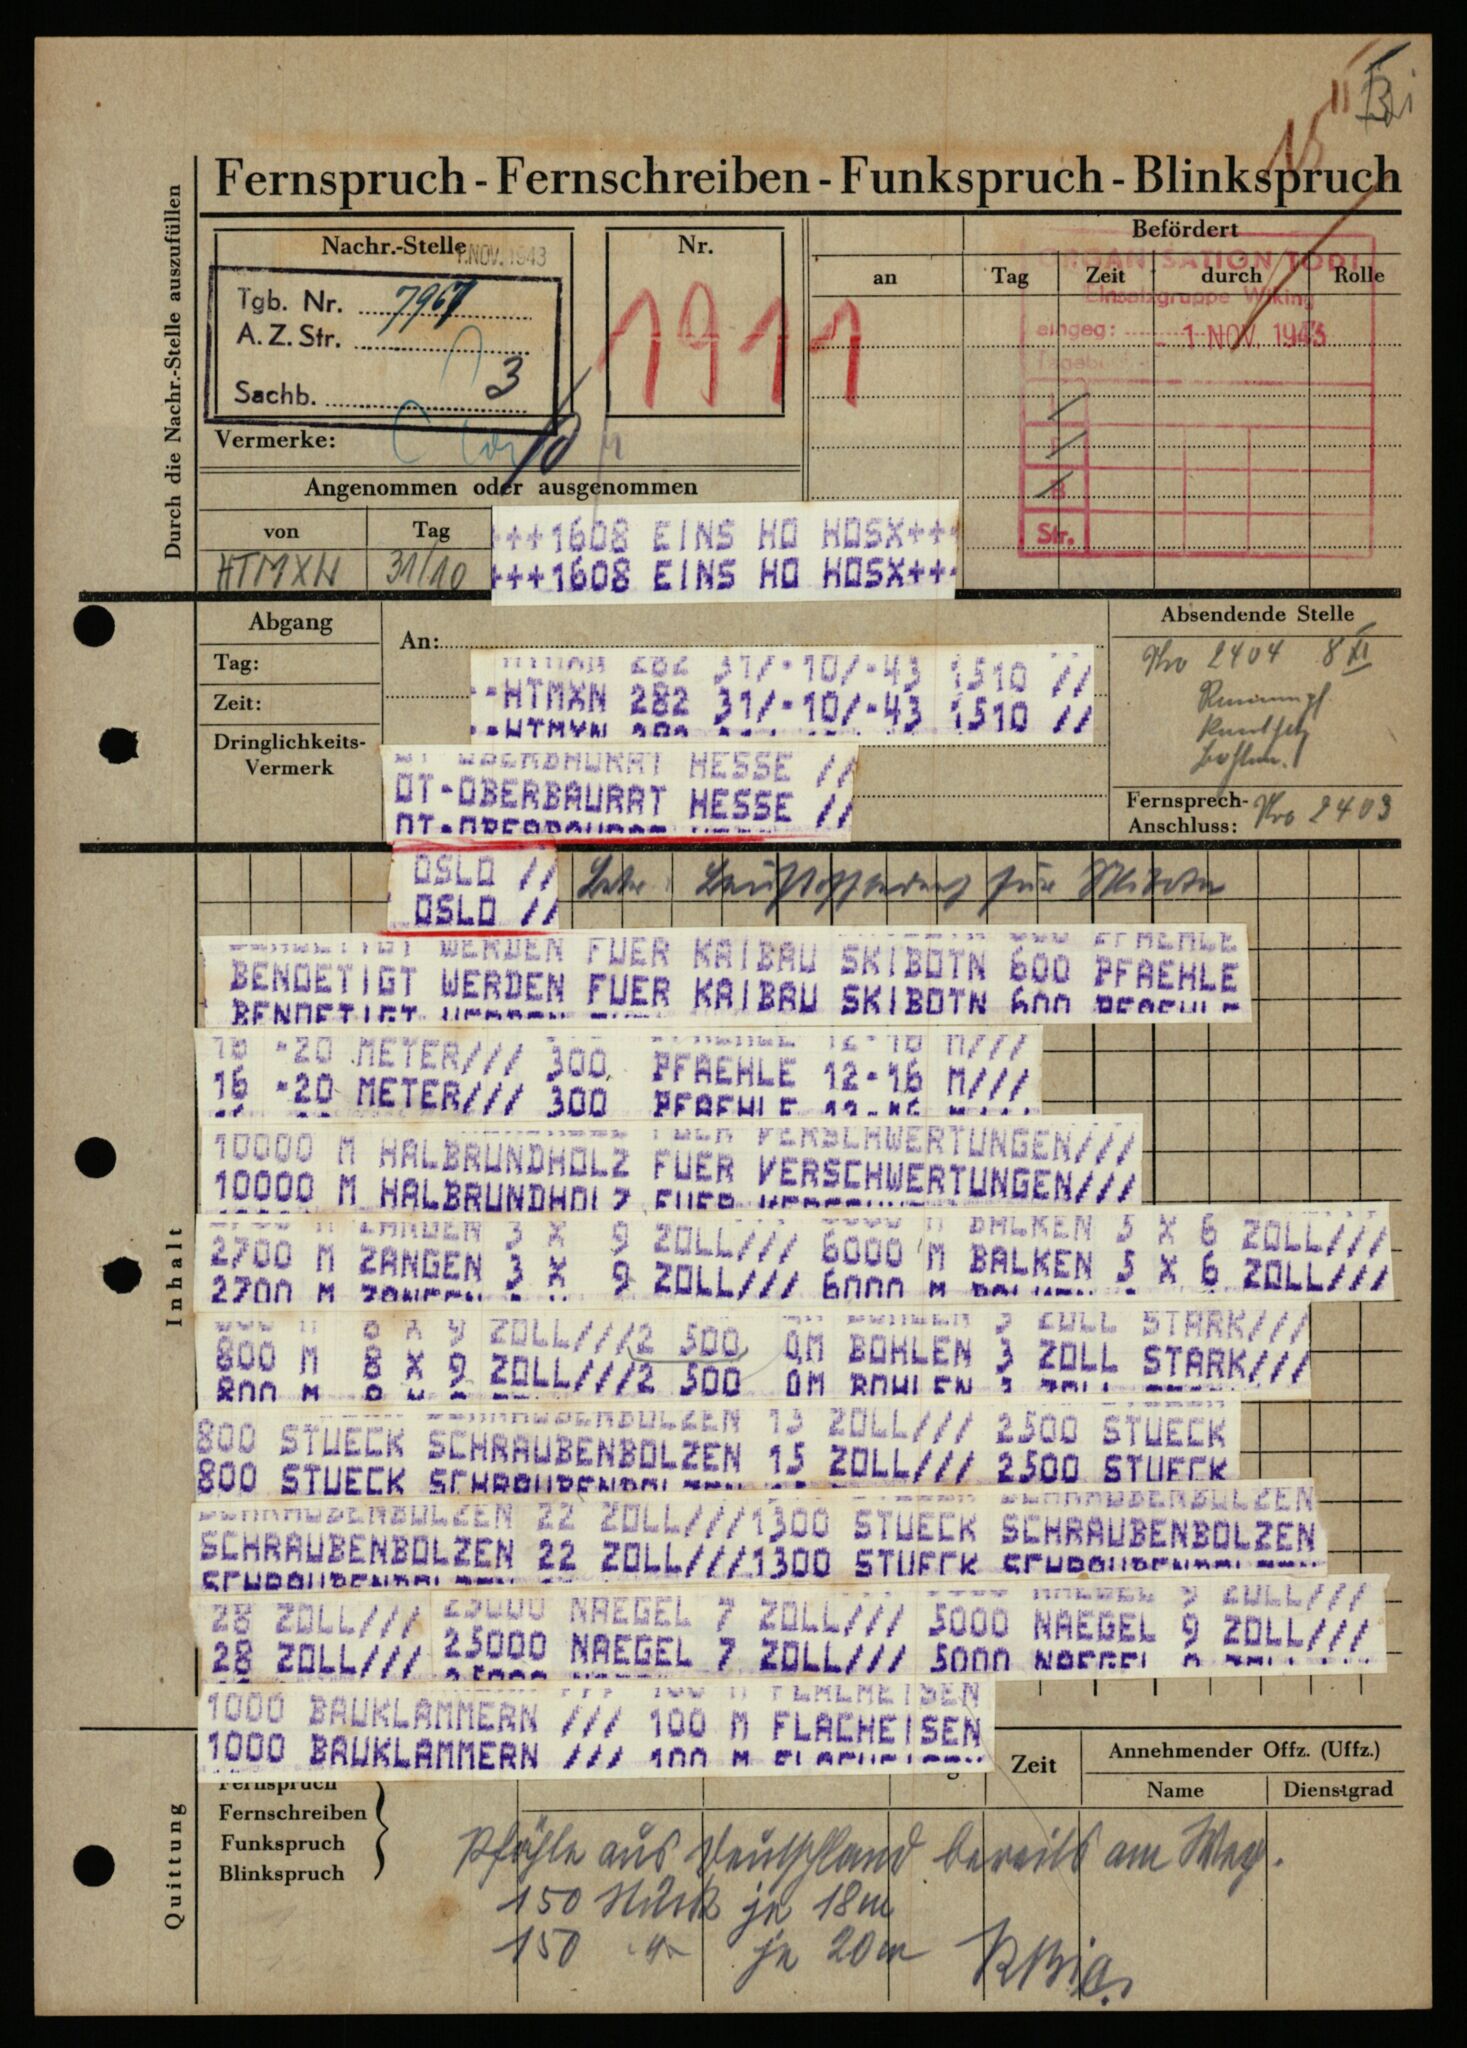 Fernspruch - Fernschreiben - Funkspruch - Blinkspruch
Durch die Nachr.-Stelle auszufüllen
Nachr.-Stelle
1. NOV. 1943
Tgb. Nr. 7967
A. Z. Str.
Sachb. 3
Nr.
1911
Befördert
an Tag Zeit durch Rolle
ORGANISATION TODT
Einsatzgruppe Wiking
eingeg: - 1 NOV. 1943
Str.
Vermerke:
Angenommen oder ausgenommen
von Tag
HTMXN 31/10
+++1608 EINS HO HOSX+++
+++1608 EINS HO HOSX+++
Abgang
Tag:
Zeit:
Dringlichkeits-
Vermerk
An:
Absendende Stelle
2404 8 XI
Fernsprech-
Anschluss: 2403
--HTMXN 282 31/-10/-43 1510 //
OT-OBERBAURAT HESSE //
OSLO //
OSLO //
Inhalt
BENOETIGT WERDEN FUER KAIBAU SKIBOTN 600 PFAEHLE
16 -20 METER/// 300 PFAEHLE 12-16 M///
10000 M HALBRUNDHOLZ FUER VERSCHWERTUNGEN///
2700 M ZANGEN 3 X 9 ZOLL/// 6000 M BALKEN 5 X 6 ZOLL///
800 M 8 X 9 ZOLL///2 500 QM BOHLEN 3 ZOLL STARK///
800 STUECK SCHRAUBENBOLZEN 15 ZOLL/// 2500 STUECK
SCHRAUBENBOLZEN 22 ZOLL///1300 STUECK SCHRAUBENBOLZEN
28 ZOLL/// 25000 NAEGEL 7 ZOLL/// 5000 NAEGEL 9 ZOLL///
1000 BAUKLAMMERN /// 100 M FLACHEISEN
Quittung
Fernspruch
Fernschreiben
Funkspruch
Blinkspruch
Zeit
Annehmender Offz. (Uffz.)
Name Dienstgrad
Pfähle aus Deutschland bereits am Weg.
150 Stück je 18 m
150 -"- je 20 m